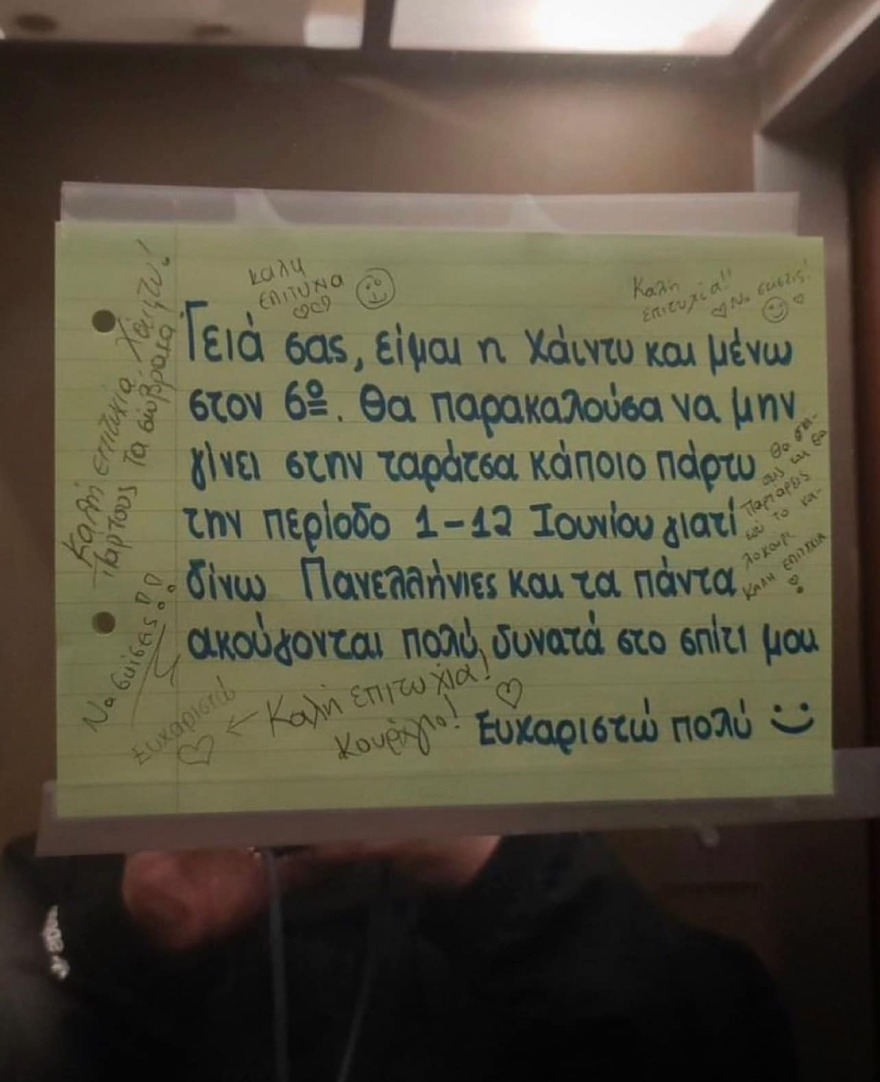 Καλη
επιτυχια
Καλή
επιτυχία!!
Να σκίσεις!
Γειά σας, είμαι η Χάιντυ και μένω
στον 6º. Θα παρακαλούσα να μην
γίνει στην ταράτσα κάποιο πάρτυ
την περίοδο 1-12 Ιουνίου γιατί
δίνω Πανελλήνιες και τα πάντα
ακούγονται πολύ δυνατά στο σπίτι μου
Ευχαριστώ πολύ
Καλή επιτυχία Χάιντυ!
Πάρτους τα σώβρακα
Να σκίσεις!!
Ευχαριστώ
← Καλή επιτυχία!
Κουράγιο!
Θα
και θα
Παρταρεις
το κα-
λοκαίρι
Καλη επιτυχια